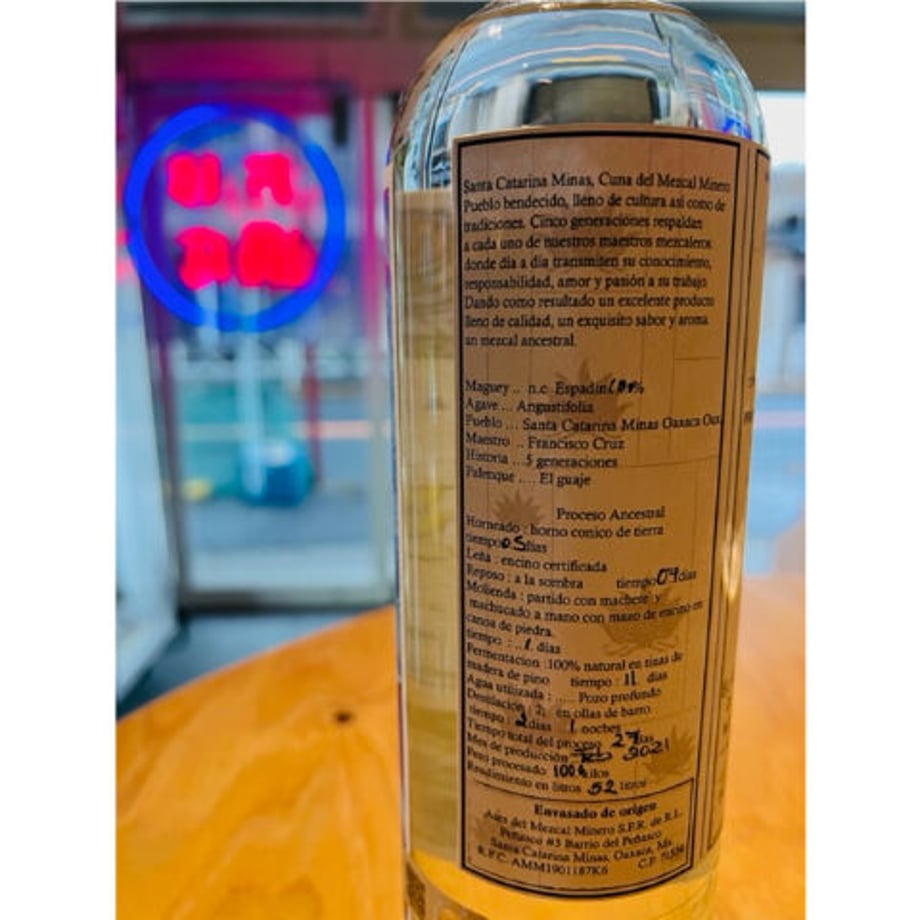 Santa Catarina Minas, Cuna del Mezcal Minero
Pueblo bendecido, lleno de cultura asi como de
tradiciones. Cinco generaciones respaldan
a cada uno de nuestros maestros mezcaleros
donde día a día transmiten su conocimiento,
responsabilidad, amor y pasión a su trabajo
Dando como resultado un excelente producto
lleno de calidad, un exquisito sabor y aroma
un mezcal ancestral.
Maguey .. n.c. Espadin 100%
Agave ... Angustifolia
Pueblo ... Santa Catarina Minas Oaxaca Oax
Maestro .. Francisco Cruz
Historia ...5 generaciones
Palenque .... El guaje
Proceso Ancestral
Horneado : horno conico de tierra
tiempo 05 días
Leña : encino certificada
Reposo : a la sombra tiempo 04 días
Molienda : partido con machete y
machucado a mano con mazo de encino en
canoa de piedra.
tiempo : .. 1 días
Fermentacion :100% natural en tinas de
madera de pino tiempo : 11 días
Agua utilizada : ..... Pozo profundo
Destilación : 2, en ollas de barro.
tiempo : 2 días 1 noches
Tiempo total del proceso 27 días
Mes de producción Feb 2021
Peso procesado 100 kilos
Rendimiento en litros 52 litros
Envasado de origen
del Mezcal Minero S.P.R. de R.L.
Peñasco #3 Barrio del Peñasco
Santa Catarina Minas, Oaxaca, Mx
R.F.C. AMM1901187K6 C.P.